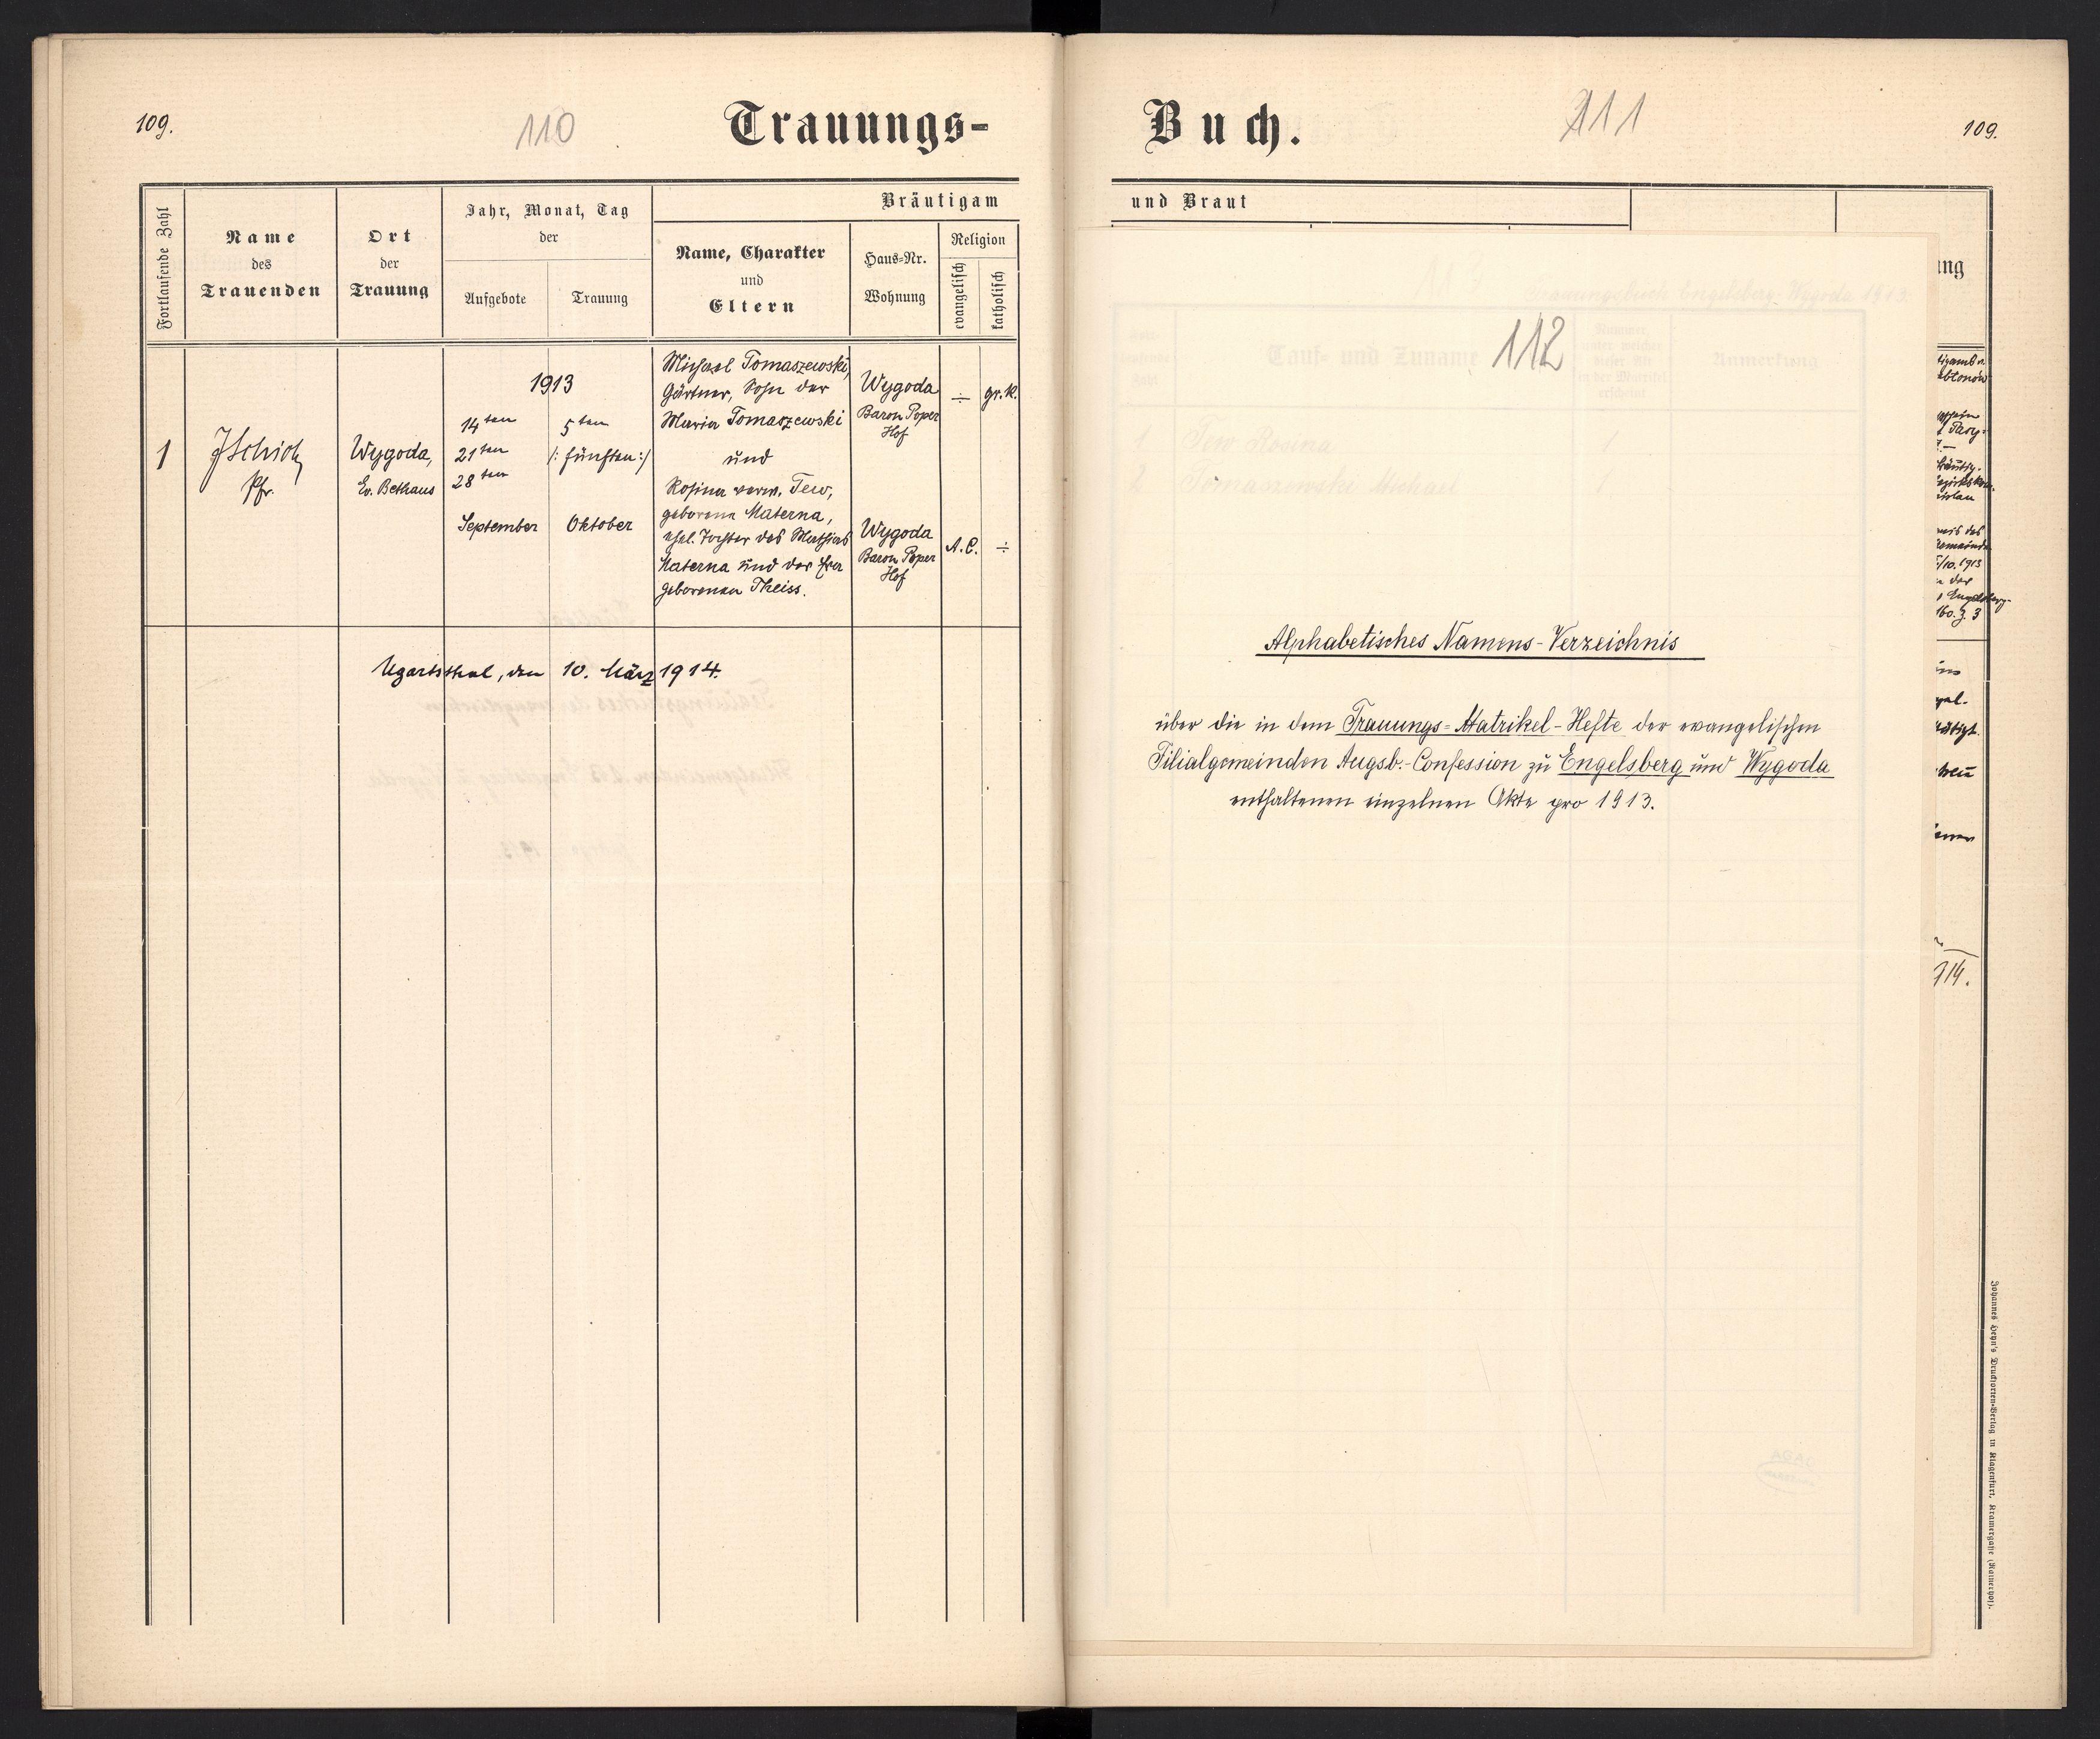 109.
110
Trauungs-
Fortlaufende Zahl
Name
des
Trauenden
Ort
der
Trauung
Jahr, Monat, Tag
der
Aufgebote
Trauung
Bräutigam
Name, Charakter
und
Eltern
Haus-Nr.
Wohnung
Religion
evangelisch
katholisch
1
Pfr.
Wygoda,
Ev. Bethaus
1913
14ten
21ten
28ten
September
5ten
/: fünften :/
Oktober
Michael Tomaszewski,
Gärtner, Sohn der
Maria Tomaszewski
und
Rosina verw. Tew,
geborene Materna,
ehel. Tochter des Mathias
Materna und der
geborenen Theiss.
Wygoda
Baron Poper
Hof
÷
gr. k.
Wygoda
Baron Poper
Hof
A. C.
÷
Ugartsthal, den 10. März 1914.
Buch.
111
109.
und Braut
ung
112
Tauf- und Zuname
Nummer,
unter welcher
dieser Akt
in der Matrikel
erscheint
Anmerkung
1 Tew Rosina 1
2 Tomaszewski Michael 1
Alphabetisches Namens-Verzeichnis
über die in dem Trauungs-Matrikel-Hefte der evangelischen
Filialgemeinden Augsb.-Confession zu Engelsberg und Wygoda
enthaltenen einzelnen Akte pro 1913.
/10. 1913
914.
Johannes Heyn's Drucksorten-Verlag in Klagenfurt, Kramergasse (Rainerhof).